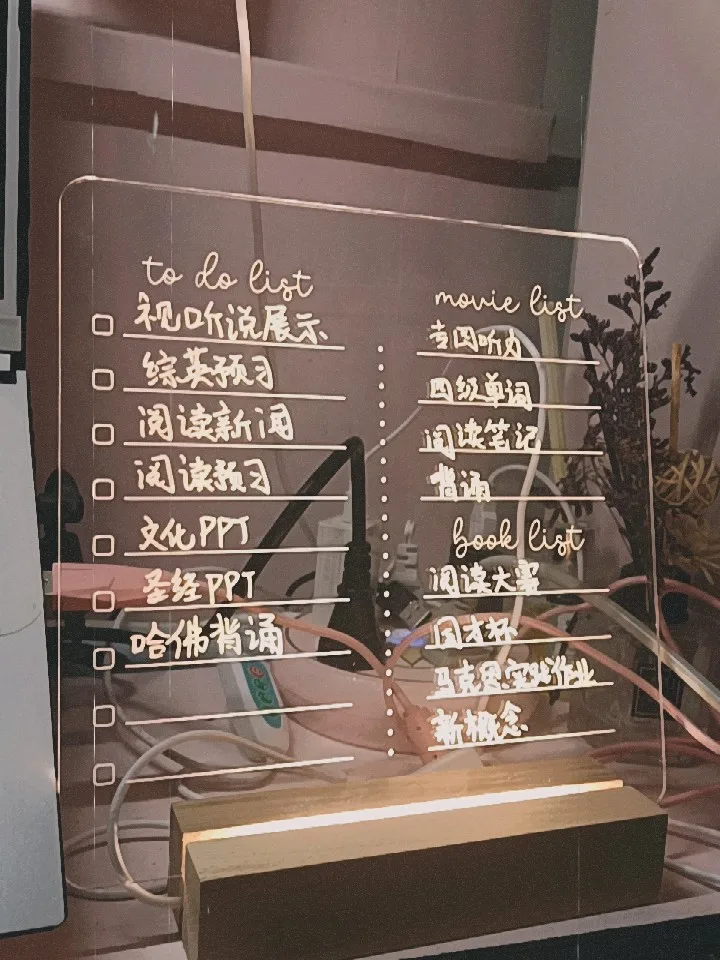 to do list
视听说展示
综英预习
阅读新闻
阅读预习
文化PPT
圣经PPT
哈佛背诵
movie list
专四听力
四级单词
阅读笔记
背诵
book list
阅读大赛
国才杯
马克思实践作业
新概念